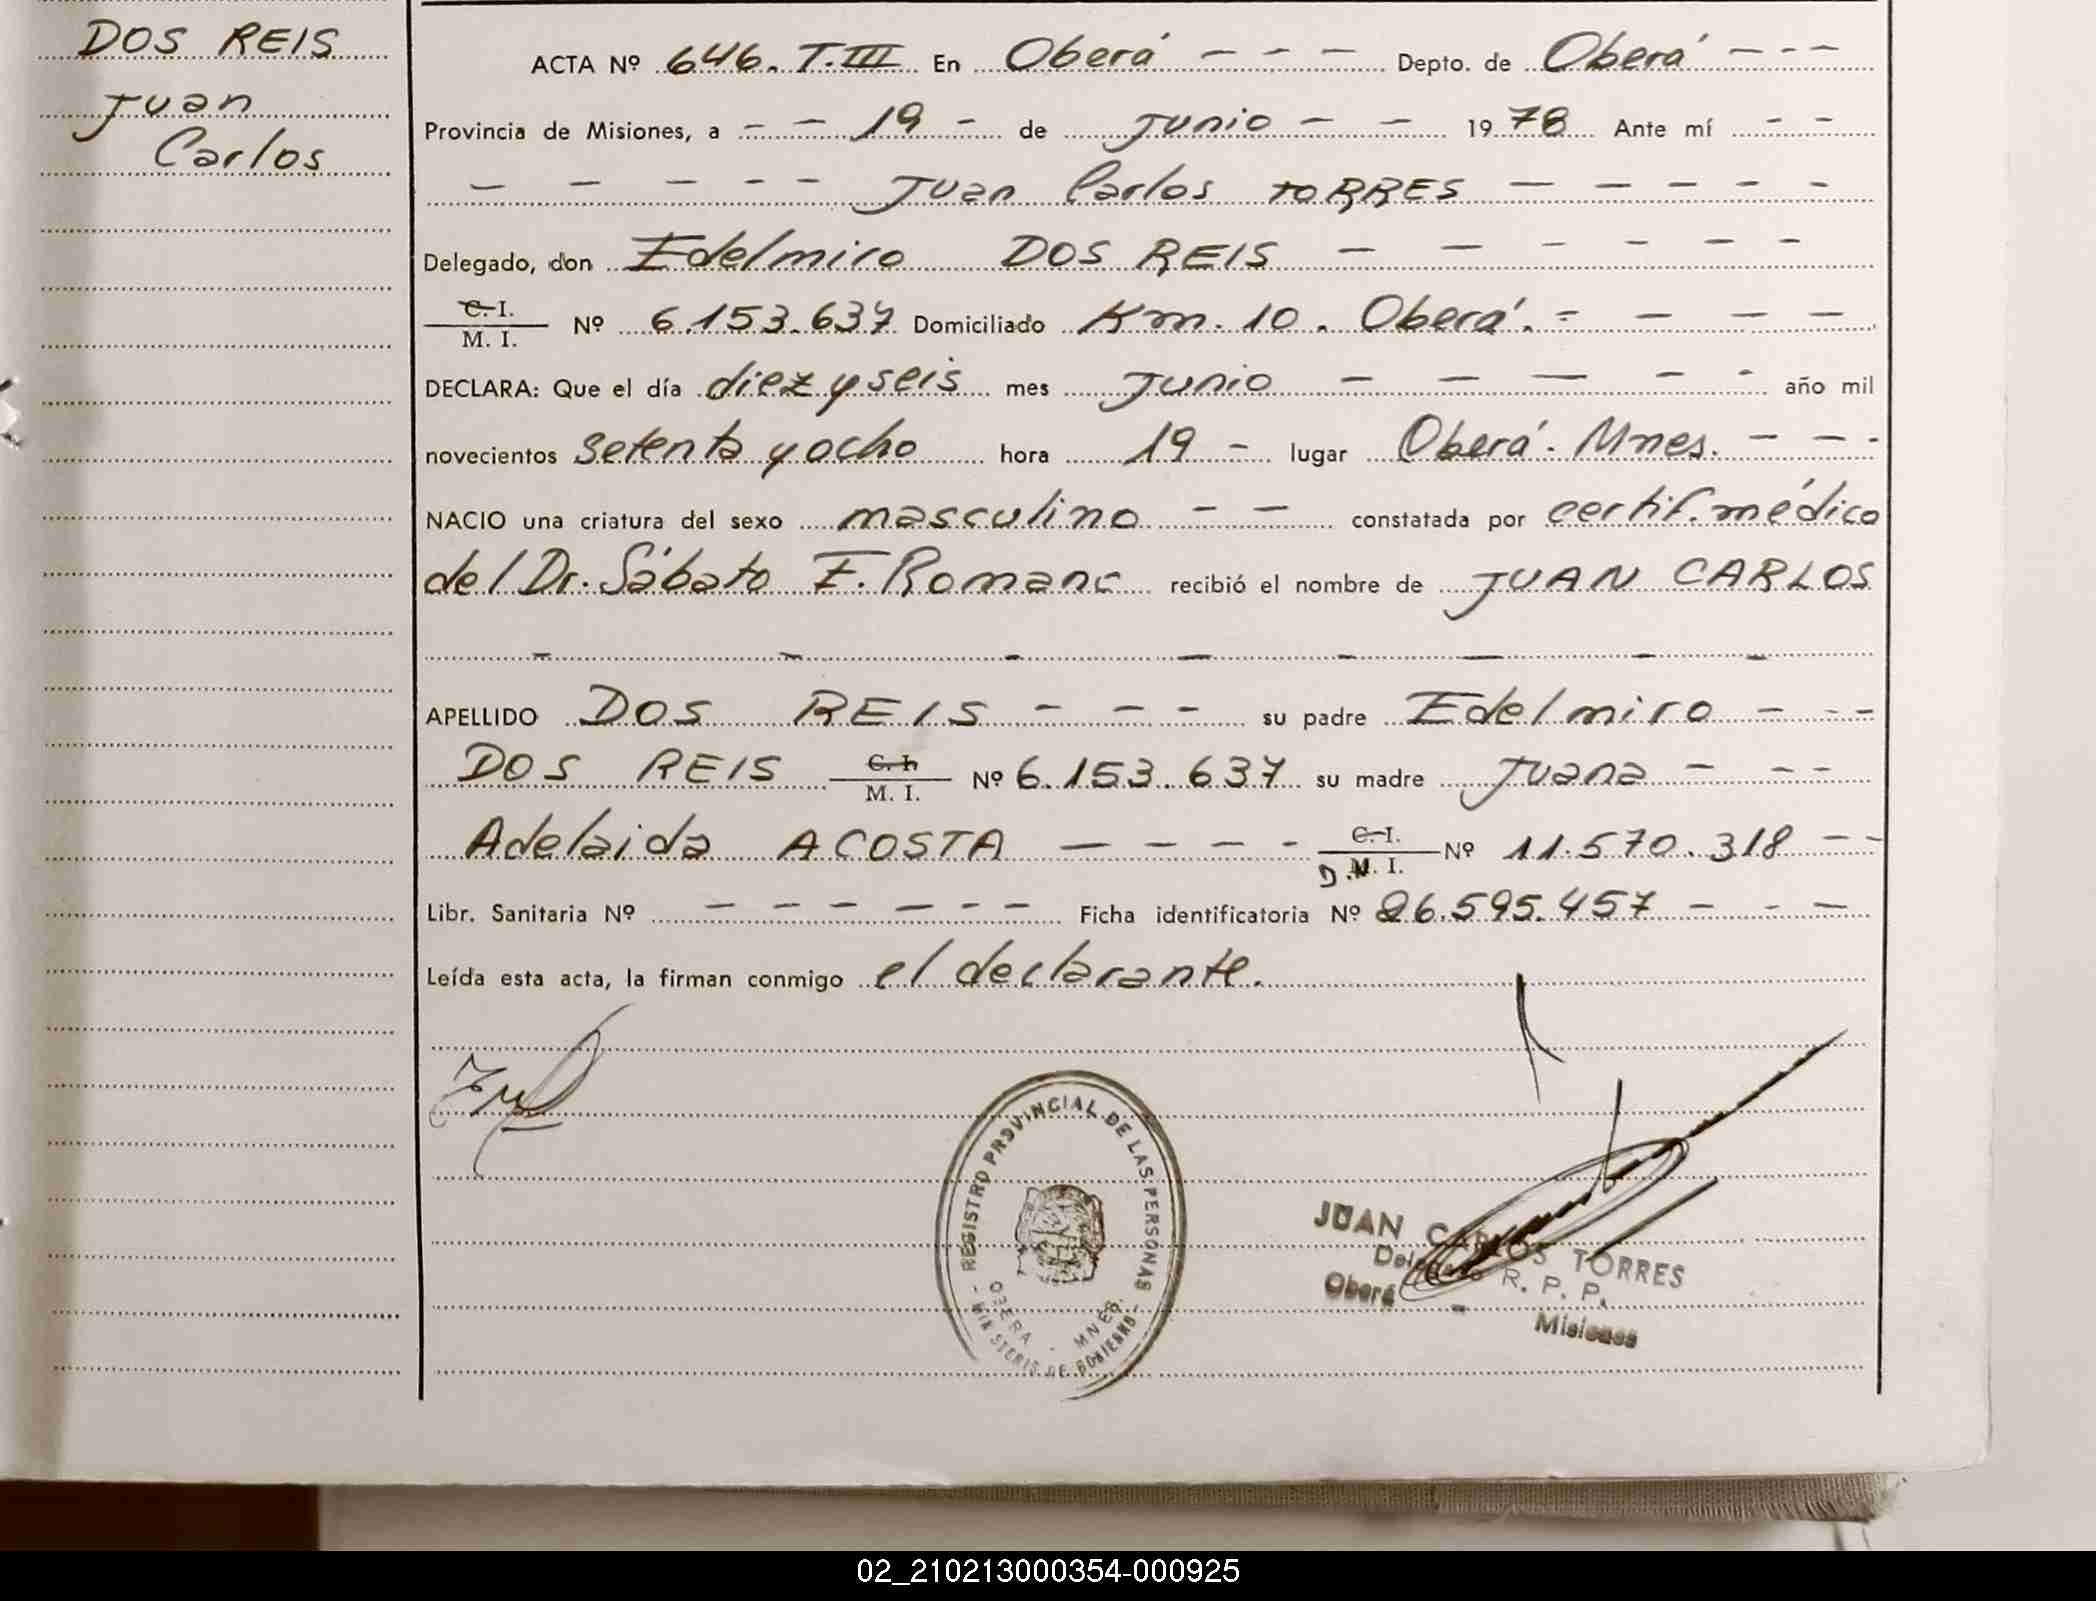 DOS REIS
Juan
Carlos
ACTA Nº 646. T.III En Oberá - - - Depto. de Oberá - - -
Provincia de Misiones, a - - 19 - de Junio - - 1978 Ante mí - -
- - - - - Juan Carlos TORRES - - - - -
Delegado, don Edelmiro DOS REIS - - - - - -
C. I.
M. I. Nº 6.153.637 Domiciliado Km. 10. Oberá. - - - -
DECLARA: Que el día diez y seis mes Junio - - - - - año mil
novecientos setenta y ocho hora 19 - lugar Oberá. Mnes. - - -
NACIO una criatura del sexo masculino - - constatada por certif. médico
del Dr. Sábato E. Romano recibió el nombre de JUAN CARLOS
- - - - - - - -
APELLIDO DOS REIS - - - su padre Edelmiro - - -
DOS REIS C. I. M. I. Nº 6.153.637 su madre Juana - - -
Adelaida ACOSTA - - - - C. I. D.N. M. I. Nº 11.570.318 - -
Libr. Sanitaria Nº - - - - - - Ficha identificatoria Nº 26.595.457 - - -
Leída esta acta, la firman conmigo el declarante.
REGISTRO PROVINCIAL DE LAS PERSONAS
OBERA - MNES.
MINISTERIO DE GOBIERNO
JUAN CARLOS TORRES
Delegado R. P. P.
Oberá - Misiones
02_210213000354-000925